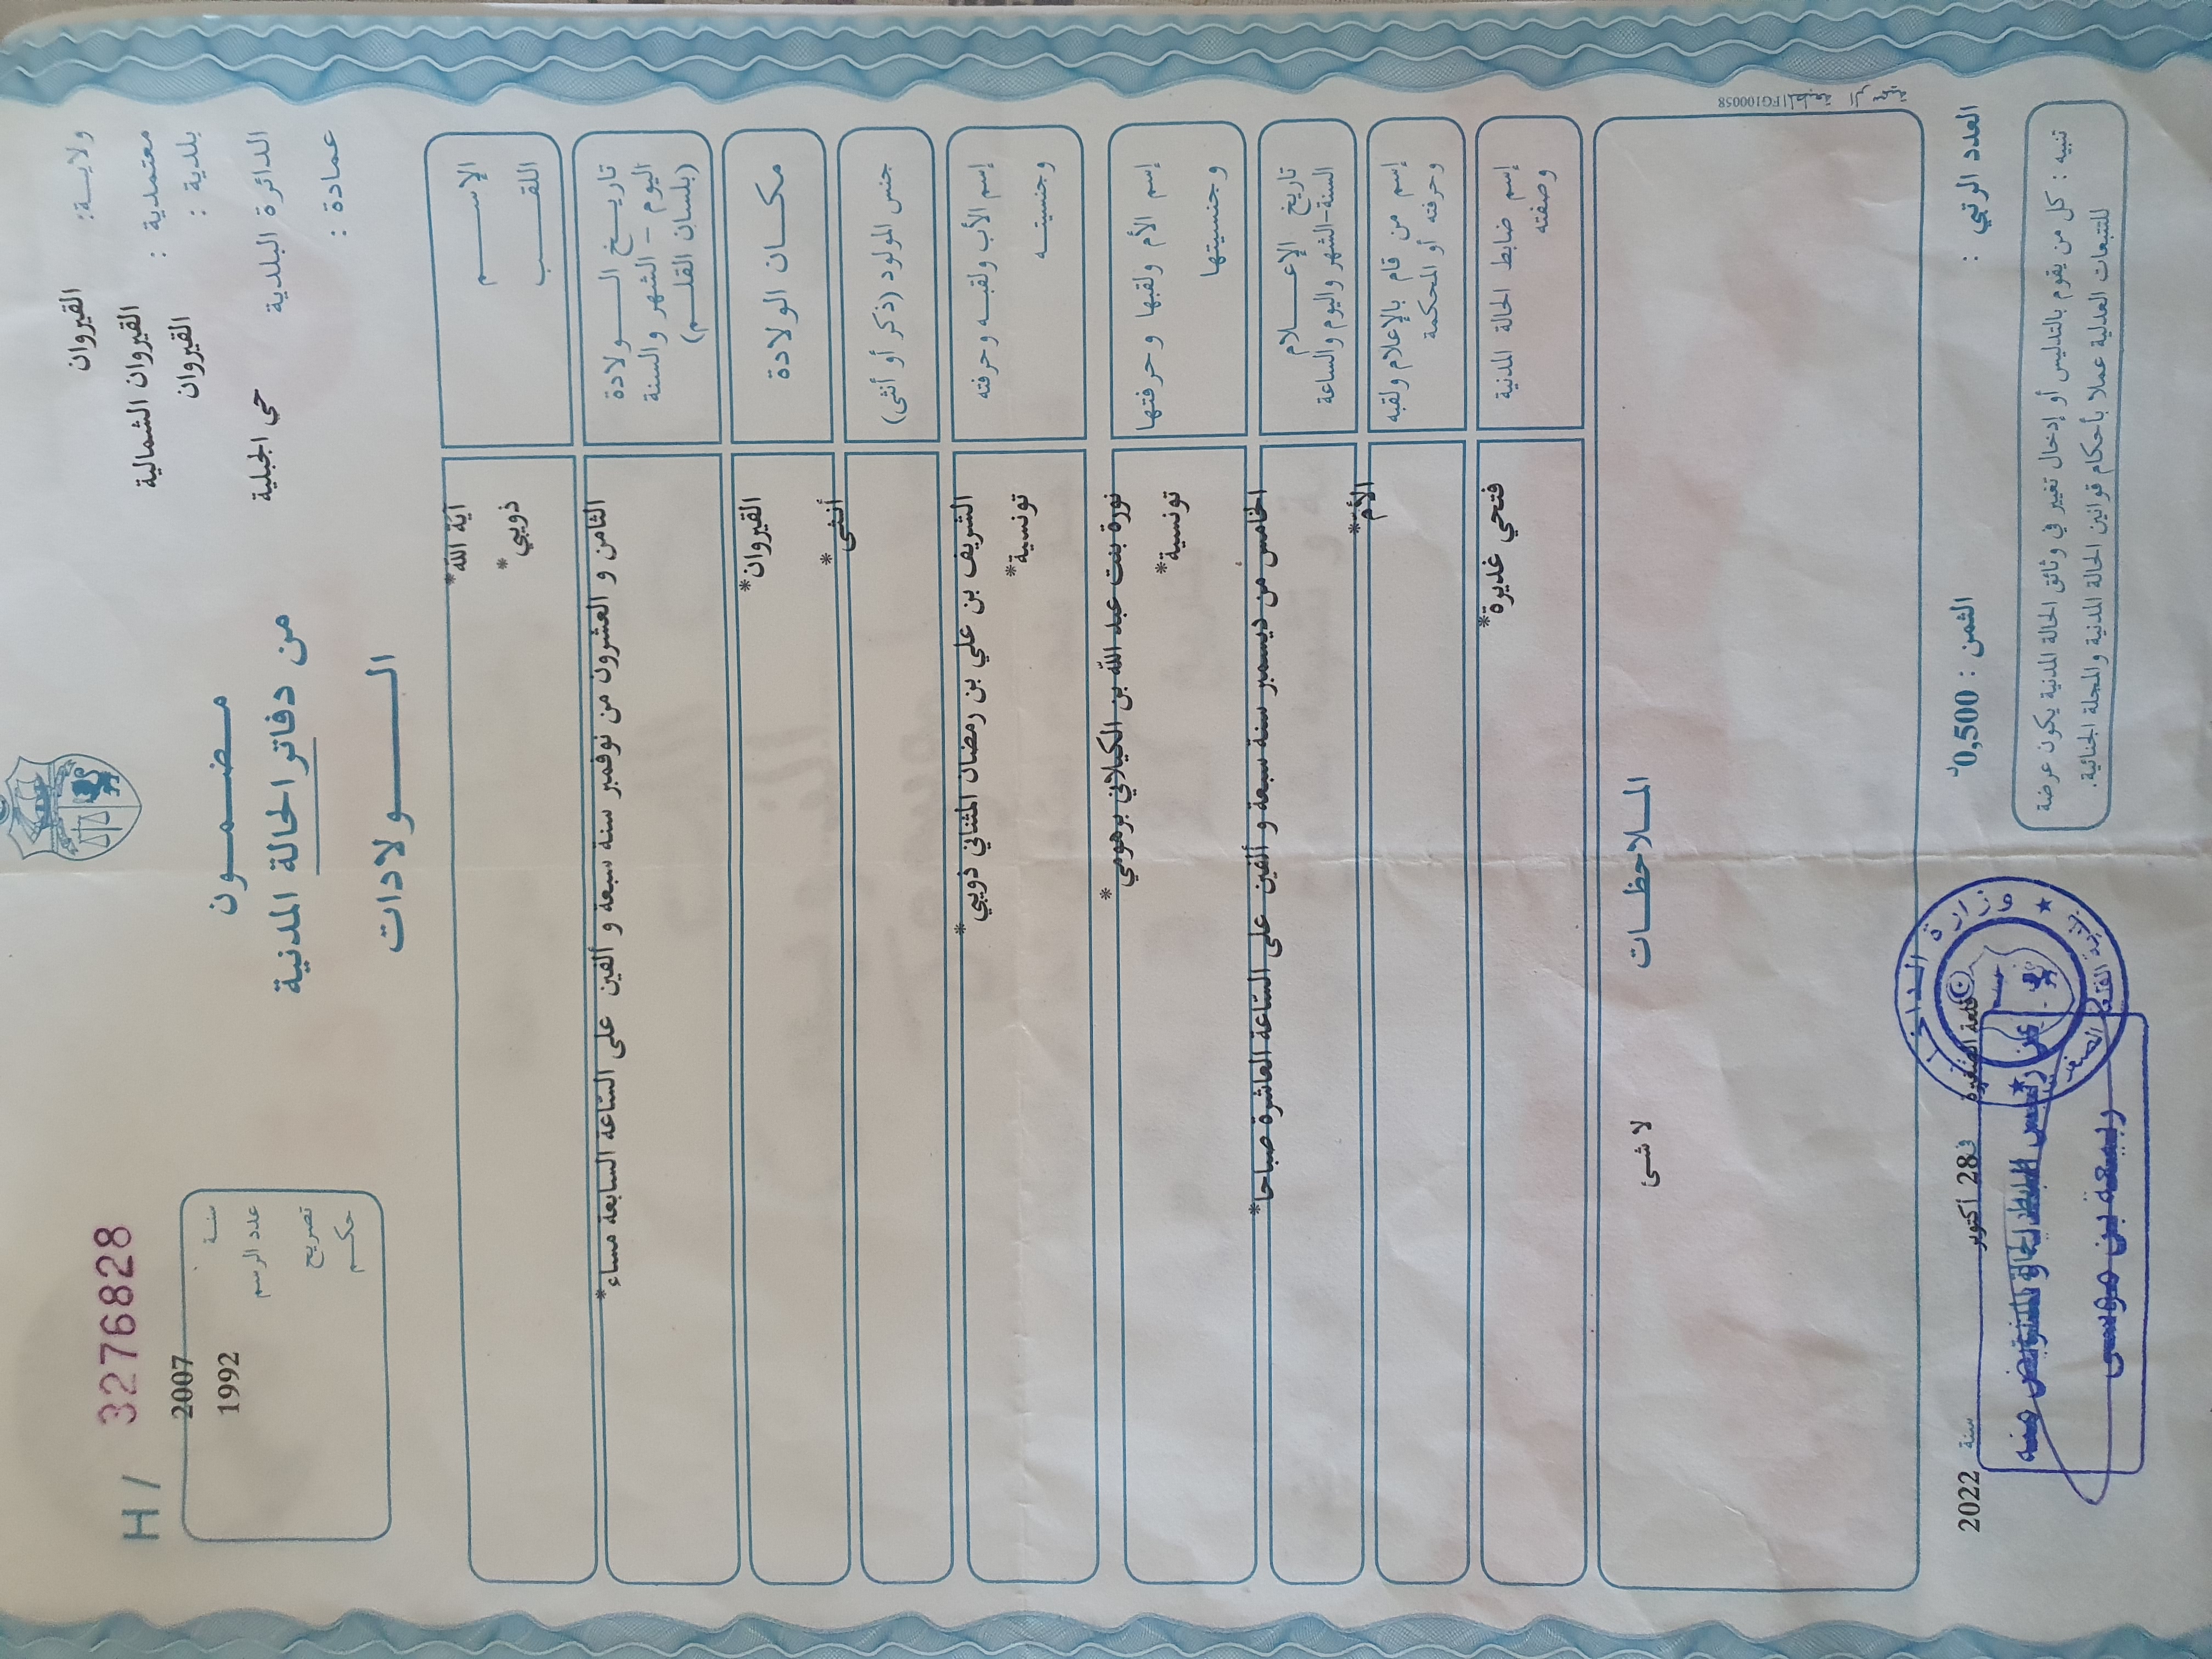 ولايــة: القيروان
معتمدية : القيروان الشمالية
بلدية : القيروان
الدائرة البلدية حي الجبلية
عمادة :
H / 3276828
2007 سنـة
1992 عدد الرسم
تصريح
حكـم
مـضـمـون
من دفاتر الحالة المدنية
الـــولادات
الإســـم آية الله*
اللقــب ذويبي*
تاريــخ الـــولادة
اليوم - الشهر والسنة
(بلسان القلــم)
الثامن و العشرون من نوفمبر سنة سبعة و ألفين على السّاعة السابعة مساء*
مكــان الولادة القيروان*
جنس المولود (ذكر أو أنثى) أنثى*
إسم الأب ولقبـه وحرفته الشريف بن علي بن رمضان المثناني ذويبي*
وجنسيتـه تونسية*
إسم الأم ولقبها وحرفتها نورة بنت عبد اللّه بن الكيلاني برهومي*
وجنسيتها تونسية*
تاريخ الإعـــلام
السنة-الشهر واليوم والساعة
الخامس من ديسمبر سنة سبعة و ألفين على السّاعة العاشرة صباحا*
إسم من قام بالإعلام ولقبه الأم*
وحرفته أو المحكمة
إسم ضابط الحالة المدنية فتحي غديرة*
وصفته
المــلاحظــات
لا شئ
FG100058
العدد الرتبي :
الثمن : 0,500د
قلعة الصغيرة في 28 أكتوبر سنة 2022
تنبيه : كل من يقوم بالتدليس أو إدخال تغيير في وثائق الحالة المدنية يكون عرضة
للتتبعات العدلية عملا بأحكام قوانين الحالة المدنية والمجلة الجنائية.
وزارة الداخلية
عن رئيس
ضابط الحالة المدنية بتفويض منه
ربيعة بن موسى